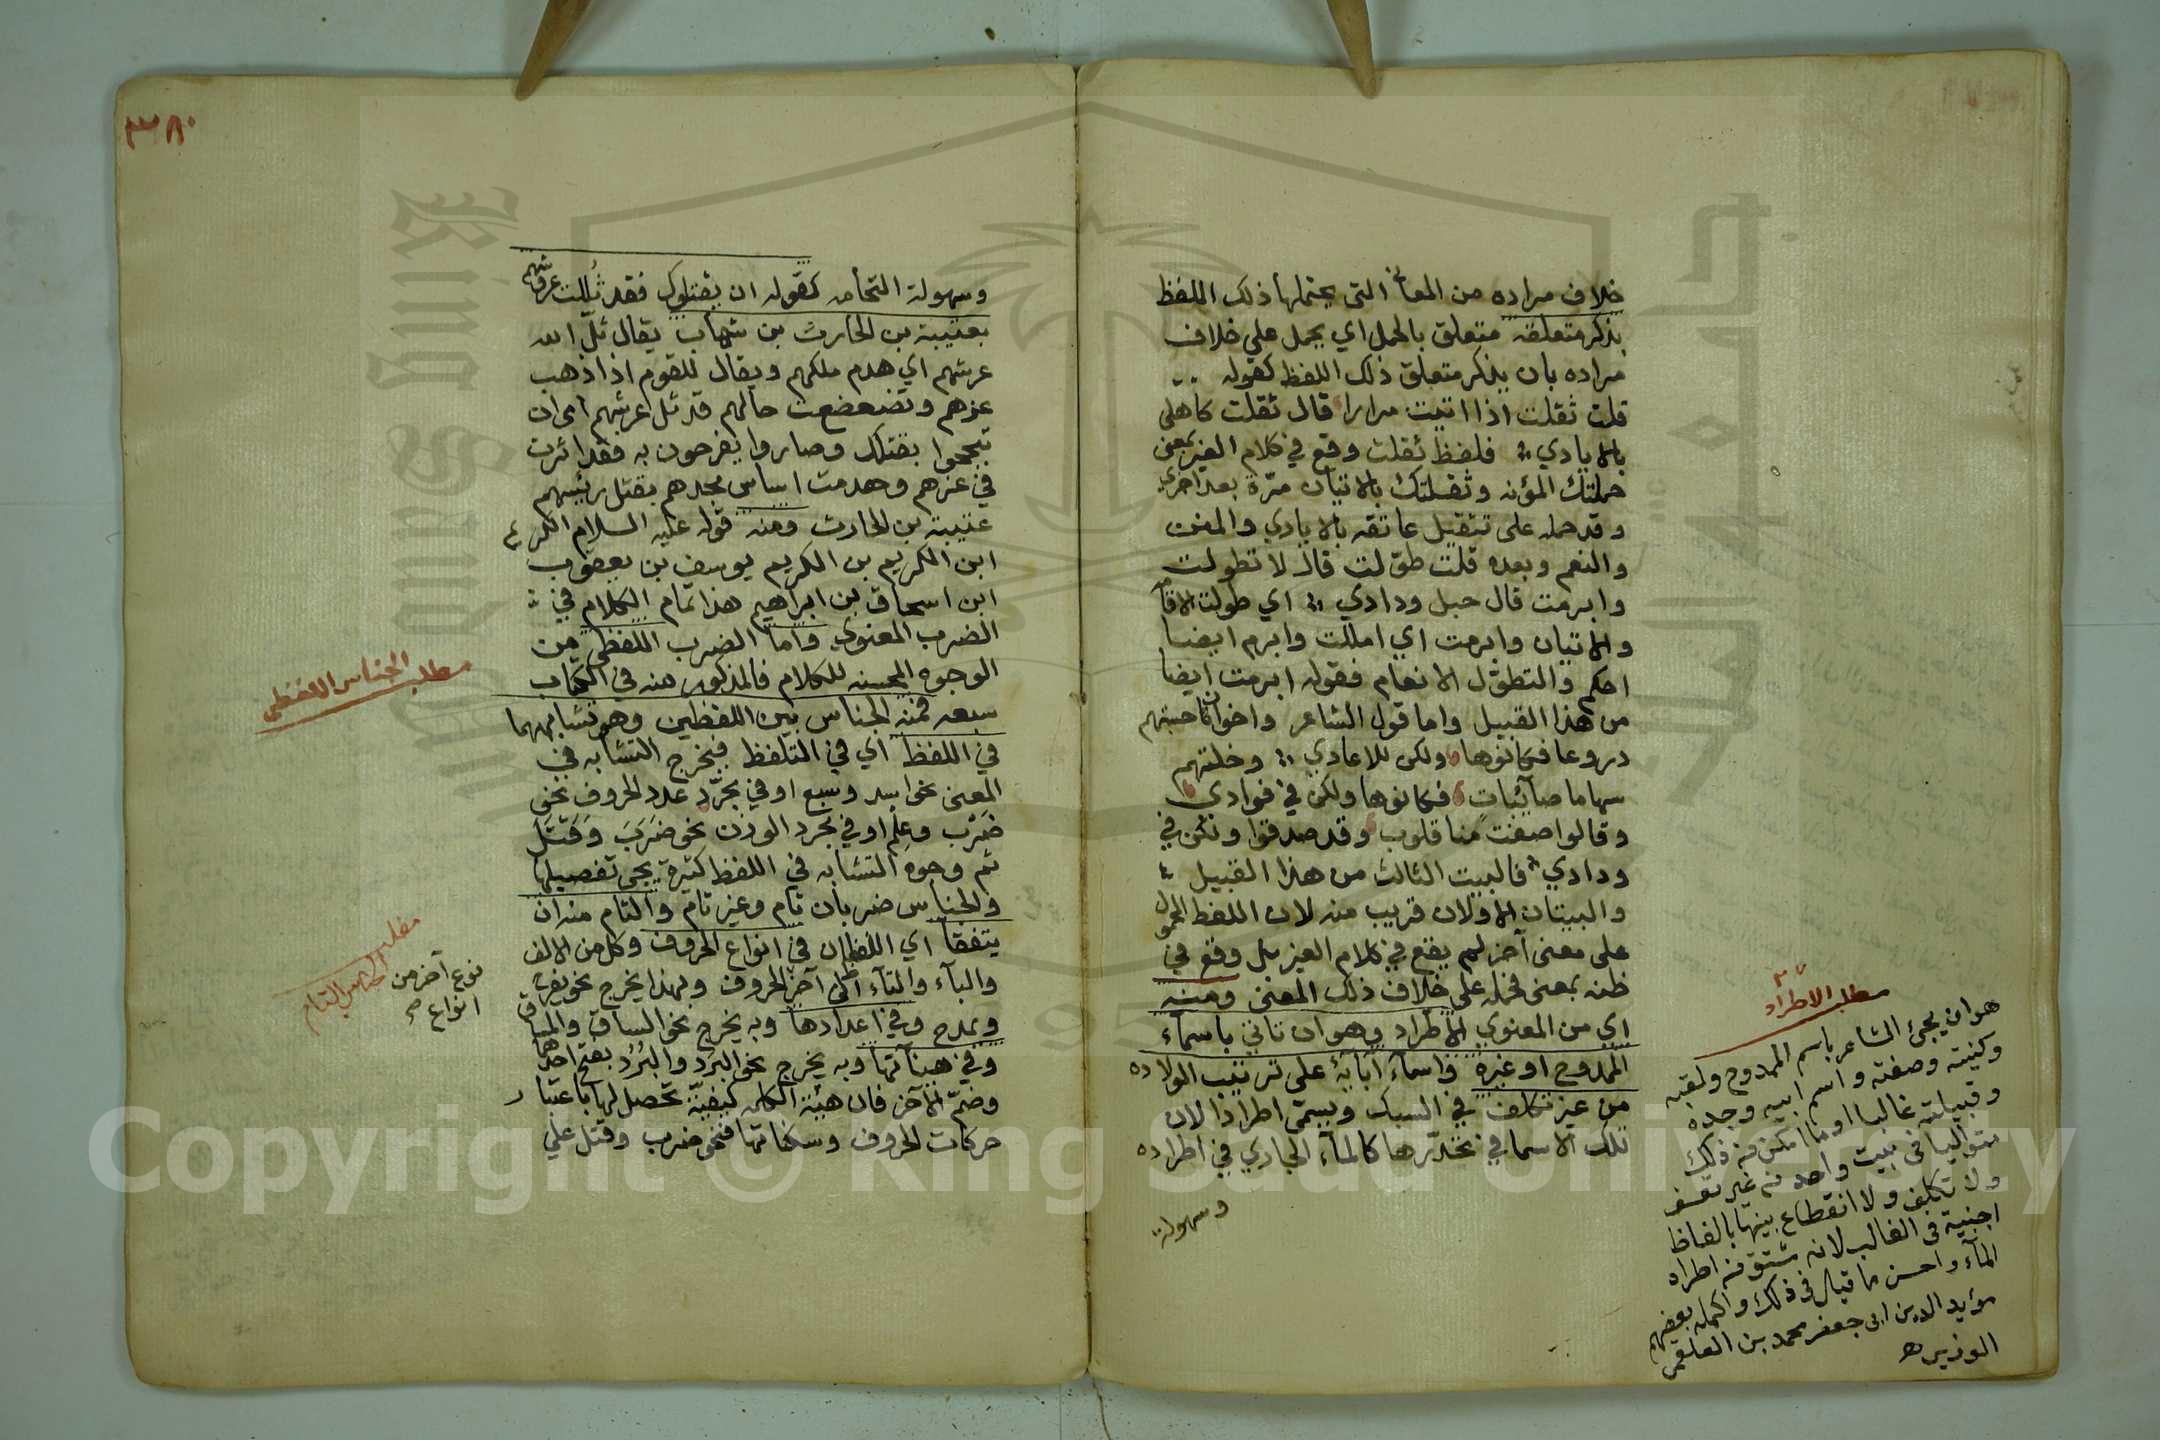 خلاف مراده من المعاني التي يحتملها ذلك اللفظ
بذكر متعلقه متعلق بالحمل اي يحمل علي خلاف
مراده بان يذكر متعلق ذلك اللفظ كقوله
قلت ثقلت اذا اتيت مرارا قال ثقلت كاهلي
بالايادي فلفظ ثقلت وقع في كلام الغير بمعني
حملتك المؤنه وثقلتك بالاتيان مرّة بعد اخري
وقد حمله على تثقيل عاتقه بالايادي والمنن
والنعم وبعده قلت طوّلت قال لا تطولت
وابرمت قال حبل ودادي اي طولت الاقامة
والاتيان وابرمت اي امللت وابرم ايضا
احكم والتطوّل الانعام فقوله ابرمت ايضا
من هذا القبيل واما قول الشاعر واخوان حسبتهم
دروعا فكانوها ولكن للاعادي وخلتهم
سهاما صائبات فكانوها ولكن في فوادي
وقالوا صفت منا قلوب وقد صدقوا ولكن في
ودادي فالبيت الثالث من هذا القبيل
والبيتان الاولان قريب منه لان اللفظ المحمول
على معنى آخر لم يقع في كلام الغير بل وقع في
ظنه بمعنى فحمله على خلاف ذلك المعنى ومنه
اي من المعنوي الاطراد وهو ان تاتي باسماء
الممدوح او غيره واسماء آبائه على ترتيب الولاده
من غير تكلف في السبك ويسمّى اطرادا لان
تلك الاسما في تحدّرها كالماء الجاري في اطراده
وسهولة
مطلب الاطراد
هو ان يجئ الشاعر باسم الممدوح ولقبه
وكنيته وصفته واسم ابيه وجده
وقبيلته غالبا او ما امكن من ذلك
متواليا في بيت واحد من غير تعسف
ولا تكلف ولا انقطاع بينها بالفاظ
اجنبية في الغالب لانه مشتق من اطراد
الماء واحسن ما قيل في ذلك واكمله بعضهم
مؤيد الدين ابى جعفر محمد بن العلقمي
الوزير ه
٣٨٠
وسهولة انسجامه كقوله ان يقتلوك فقد ثللت عروشهم
بعتيبة بن الحارث بن شهاب يقال ثلّ الله
عرشهم اي هدم ملكهم ويقال للقوم اذا ذهب
عزهم وتضعضعت حالهم قد ثل عرشهم اي ان
تبجحوا بقتلك وصاروا يفرحون به فقد اثرت
في عزهم وهدمت اساس مجدهم بقتل رئيسهم
عتيبة بن الحارث ومنه قوله عليه السلام الكريم
ابن الكريم بن الكريم يوسف بن يعقوب
ابن اسحاق بن ابراهيم هذا تمام الكلام في
الضرب المعنوي واما الضرب اللفظي من
الوجوه المحسنه للكلام فالمذكور منه في الكتاب
سبعه فمنه الجناس بين اللفظين وهو تشابههما
في اللفظ اي في التلفظ فيخرج التشابه في
المعنى نحو اسد وسبع او في مجرّد عدد الحروف نحو
ضرب وعلم او في مجرد الوزن نحو ضَرَبَ وَقَتَلَ
ثم وجوه التشابه في اللفظ كثيرة يجي تفصيلها
والجناس ضربان تام وغير تام والتام منه ان
يتفقا اي اللفظان في انواع الحروف وكل من الالف
والباء والتاء الى آخر الحروف وبهذا يخرج نحو يفرح
ويمرح وفي اعدادها وبه يخرج نحو الساق والمساق
وفي هيئاتها وبه يخرج نحو البَرد والبُرد بفتح احدهما
وضمّ الآخر فان هيئة الكلمه كيفيّة تحصل لها باعتبار
حركات الحروف وسكناتها فنحو ضرب وقتل علي
مطلب الجناس اللفظي
مطلب الجناس التام
نوع آخر من
انواع